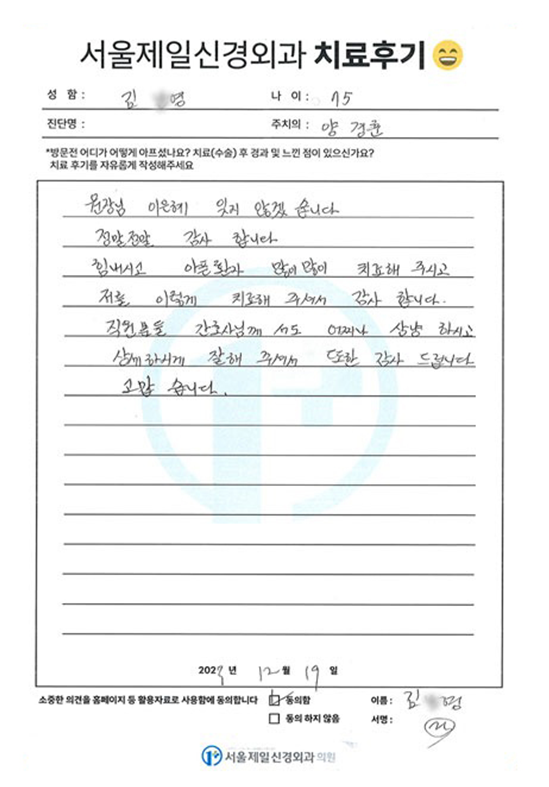 서울제일신경외과 치료후기
성 함 : 김 영 나 이 : 75
진단명 : 주치의 : 양 경훈
*방문전 어디가 어떻게 아프셨나요? 치료(수술) 후 경과 및 느낀 점이 있으신가요?
치료 후기를 자유롭게 작성해주세요
원장님 이은혜 잊지 않겠 습니다
정말정말 감사 합니다
힘내시고 아픈환자 많이많이 치료해 주시고
저를 이렇게 치료해 주셔서 감사 합니다.
직원분들 간호사님께 서도 어찌나 상냥 하시고
상세하시게 잘해 주셔서 또한 감사 드립니다
고맙 습니다.
202 년 12 월 19 일
소중한 의견을 홈페이지 등 활용자료로 사용함에 동의합니다 동의함 이름 : 김 영
동의 하지 않음 서명 :
서울제일신경외과 의원